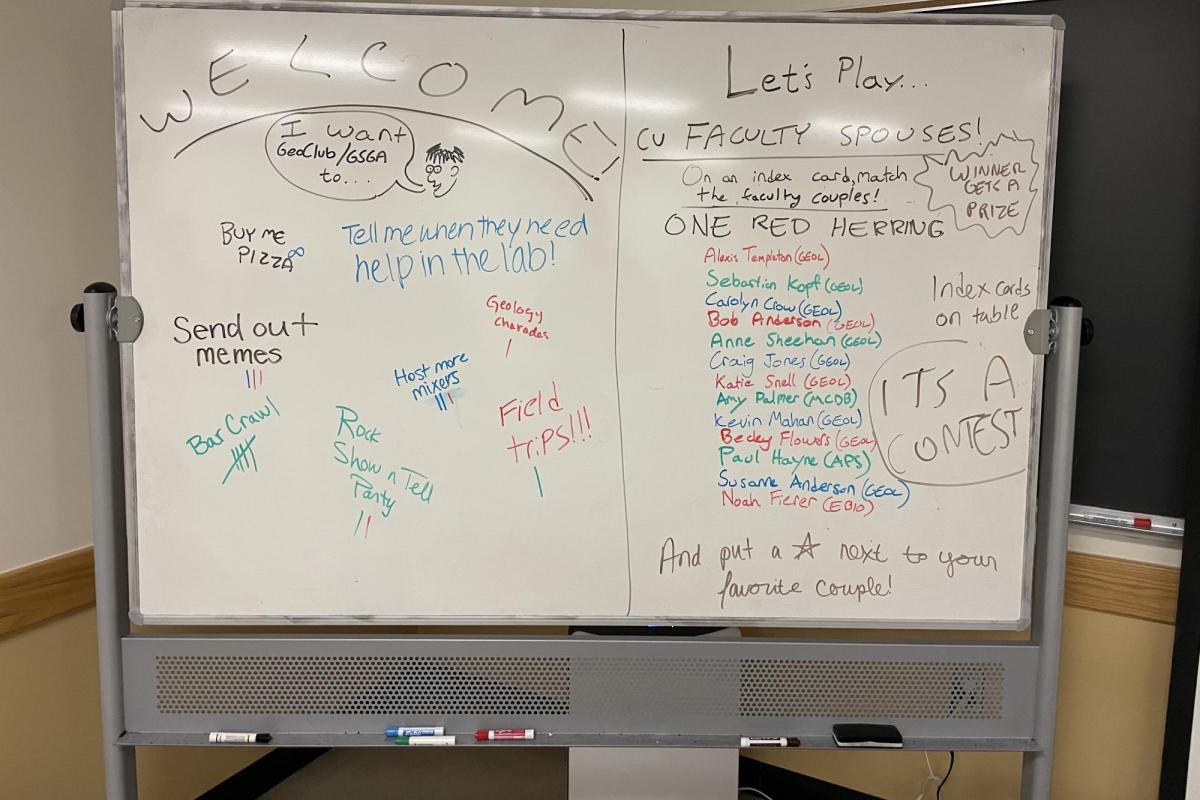 WELCOME!
I want
GeoClub/GSGA
to...
BUY ME
PIZZA∞
Tell me when they need
help in the lab!
Send out
memes
Geology
charades
Host more
mixers
Bar Crawl
Rock
Show n Tell
Party
Field
trips!!!
Let's Play...
CU FACULTY SPOUSES!
On an index card, match
the faculty couples!
WINNER
GETS A
PRIZE
ONE RED HERRING
Alexis Templeton (GEOL)
Sebastian Kopf (GEOL)
Carolyn Crow (GEOL)
Bob Anderson (GEOL)
Anne Sheehan (GEOL)
Craig Jones (GEOL)
Katie Snell (GEOL)
Amy Palmer (MCDB)
Kevin Mahan (GEOL)
Becky Flowers (GEOL)
Paul Hayne (APS)
Susanne Anderson (GEOL)
Noah Fierer (EBIO)
Index cards
on table
ITS A
CONTEST
And put a ☆ next to your
favorite couple!